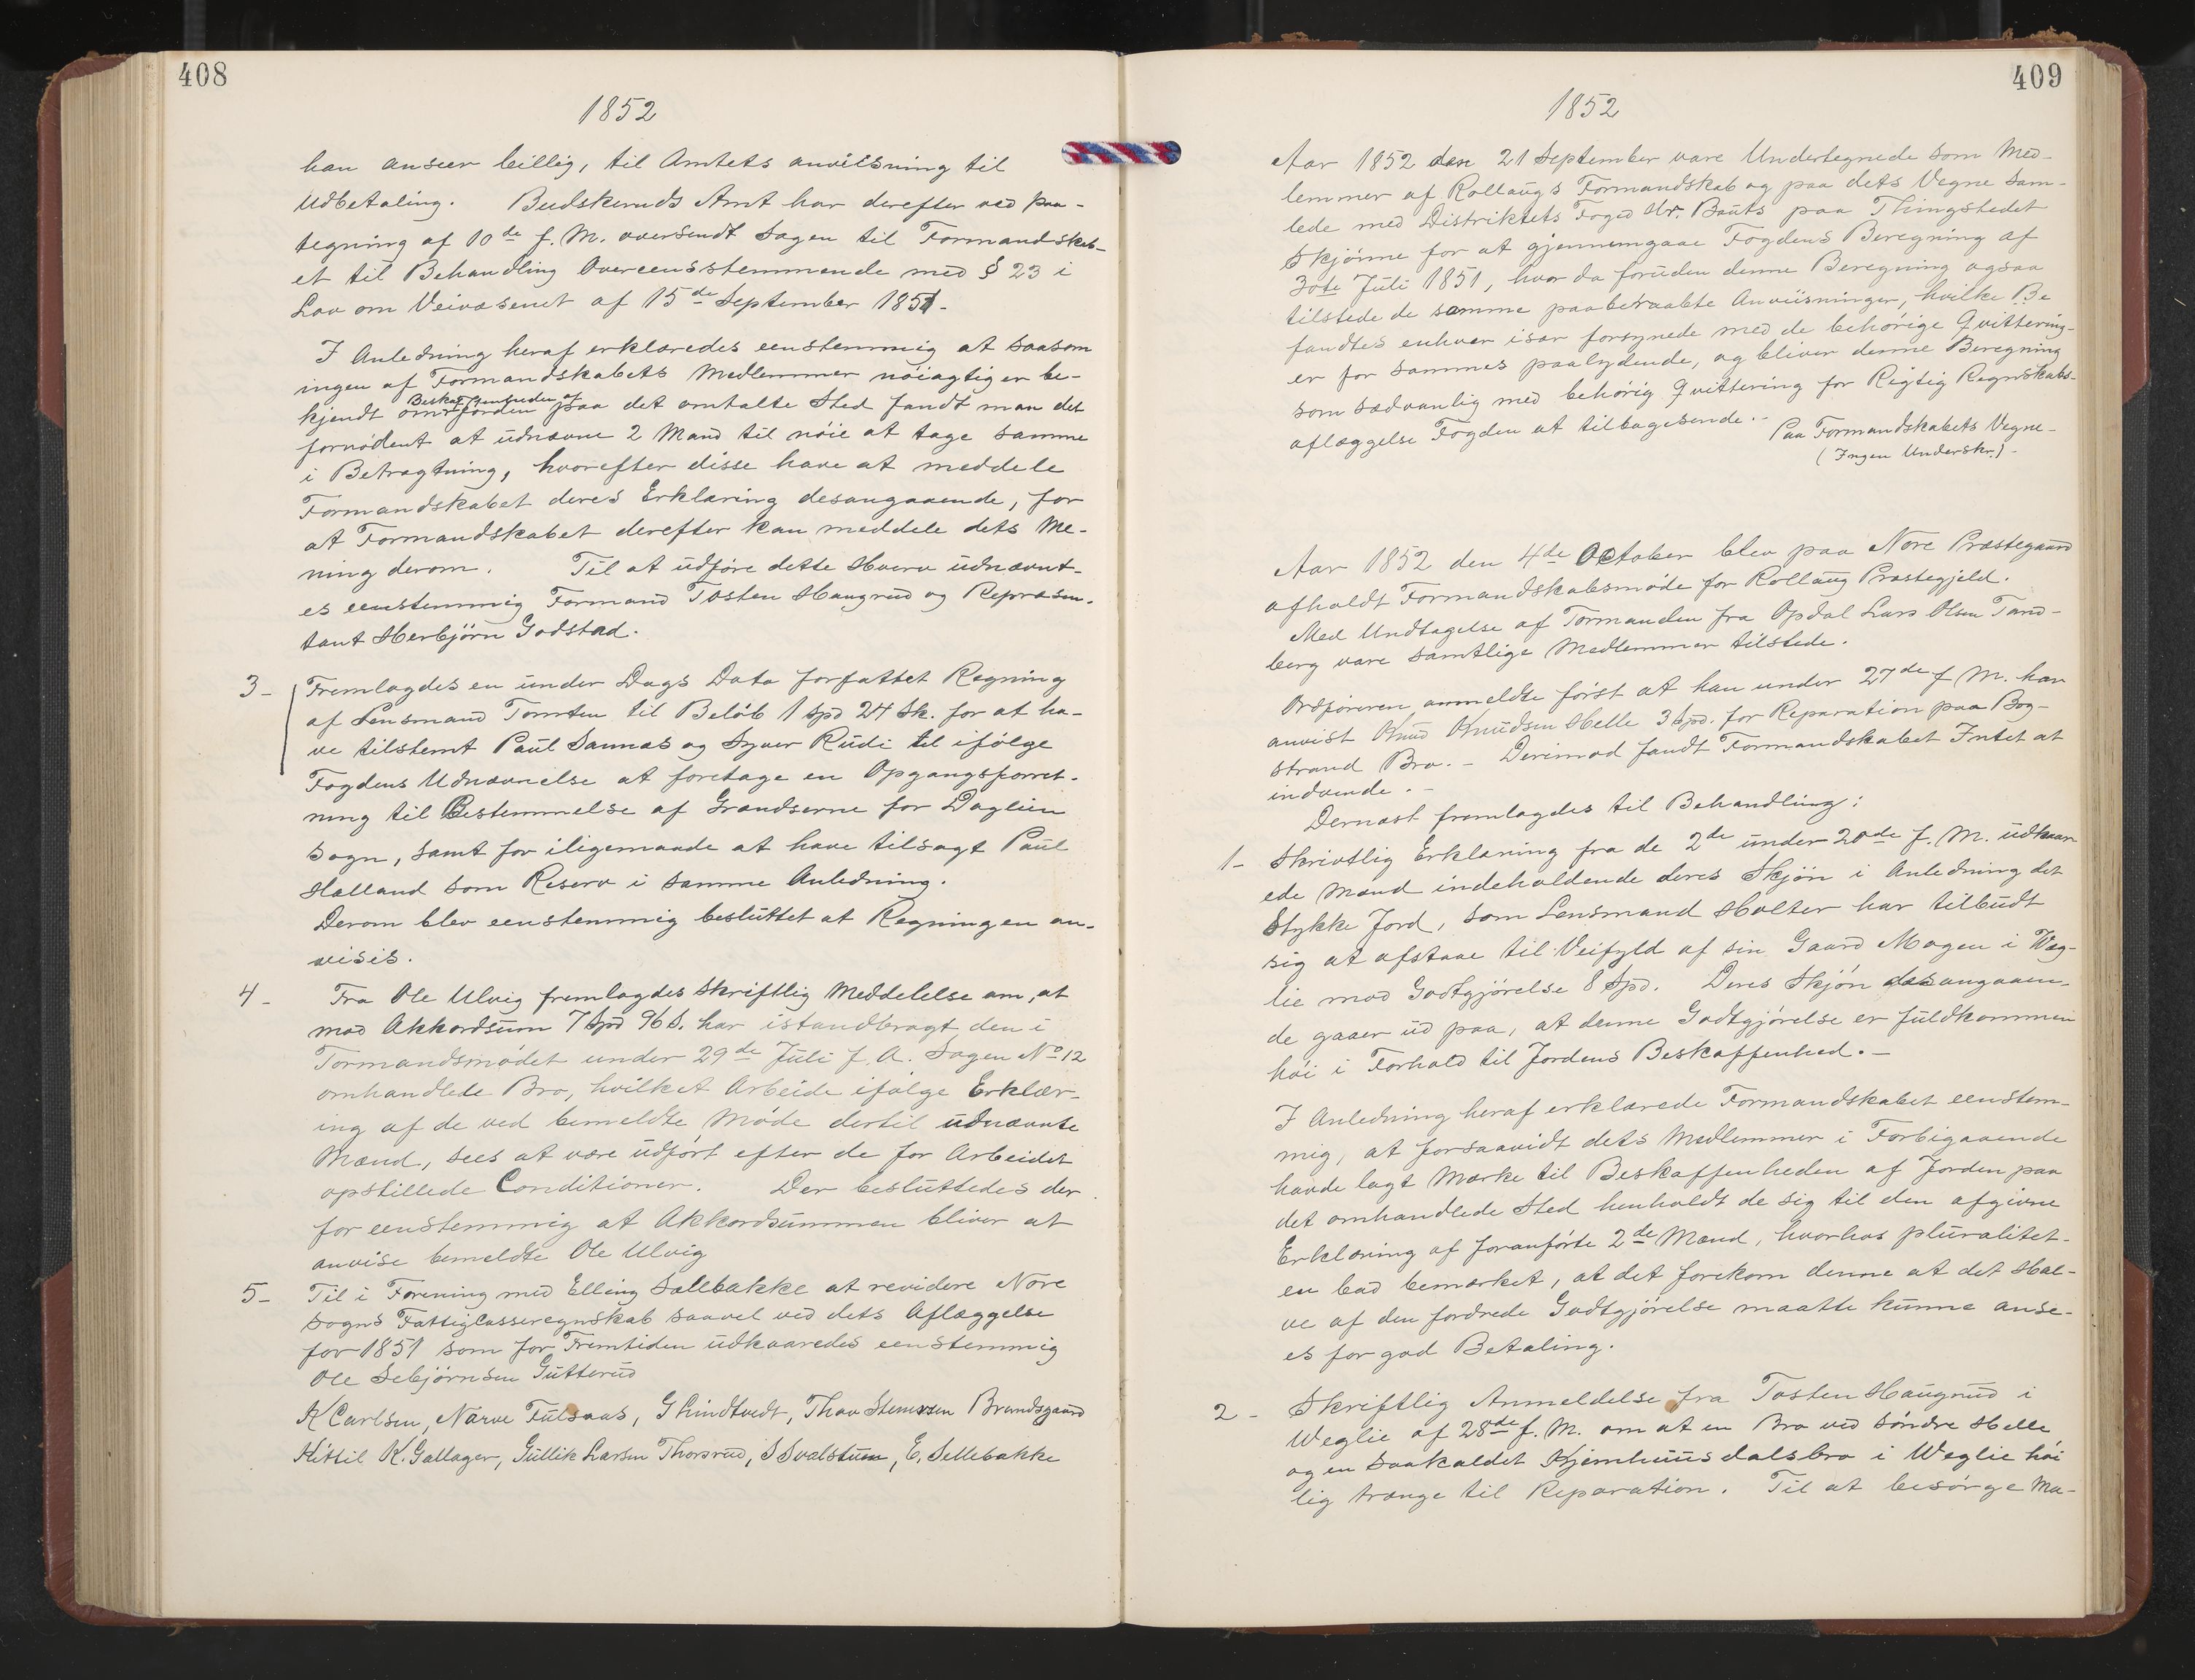 408
1852
han anseer billig, til Amtets anviisning til
Udbetaling. Budskeruds Amt har derefter ved Paa-
tegning af 10de f. M. oversendt Sagen til Formandskab-
et til Behandling Overeensstemmende med § 23 i
Lov om Veivæsenet af 15de September 1851-
I Anledning heraf erklæredes eenstemmig at saasom
ingen af Formandskabets Medlemmer nöiagtig er be-
Beskaffenheden af
kjendt om Jorden paa det omtalte Sted fandt man det
fornödent at udnævne 2 Mand til nöie at tage samme
i Betragtning, hvorefter disse have at meddele
Formandskabet deres Erklæring desangaaende, for
at Formandskabet derefter kan meddele dets Me-
ning derom. Til at udföre dette Hverv udnævnt-
es eenstemmig Formand Tosten Haugrud og Repræsen-
tant Herbjörn Godstad.
3- Fremlagdes en under Dags Dato forfattet Regning
af Lensmand Tomten til Belöb 1 Spd 24 Sk. for at ha-
ve tilstemt Paul Sannæs og Syver Rudi til ifölge
Fogdens Udnævnelse at foretage en Opgangsforret-
ning til Bestemmelse af Grændserne for Daglien
Sogn, samt for iligemaade at have tilsagt Paul
Halland som Reserv i samme Anledning.
Derom blev eenstemmig besluttet at Regningen an-
visis.
4- Fra Ole Ulvig fremlagdes Skriftlig Meddelelse om, at
mod Akkordsum 7 Spd 96 S. har istandbragt den i
Formandsmödet under 29de Juli f. A. Sagen No 12
omhandlede Bro, hvilket Arbeide ifölge Erklær-
ing af de ved bemeldte Möde dertil udnævnte
Mænd, sees at være udfört efter de for Arbeidet
opstillede Conditioner. Der besluttedes der
for eenstemmig at Akkordsummen bliver at
anvise bemeldte Ole Ulvig
5- Til i Forening med Elling Sællebakke at revidere Nore
Sogns Fattigcasseregnskab saavel ved dets Aflæggelse
for 1851 som for Fremtiden udkaaredes eenstemmig
Ole Sebjörnsen Gutterud
K Carlsen, Narve Fulsaas, G Lindtvedt, Thov Stenersen Brundsgaard
Kittil K. Gallager, Gullik Larsen Thorsrud, S Svalstuen, E. Sellebakke
409
1852
Aar 1852 den 21 September vare Undertegnede som Med-
lemmer af Rollaugs Formandskab og paa dets Vegne sam-
lede med Distriktets Foged Hr. Bauts paa Thingstedet
Skjönne for at gjennemgaae Fogdens Beregning af
30te Juli 1851, hvor da foruden denne Beregning ogsaa
tilstede de samme paaberaabte Anviisninger, hvilke Be
fandtes enhver især forsynede med de behörige Qvittering-
er for sammes paalydende, og bliver denne Beregning
som sædvanlig med behörig Qvittering for Rigtig Regnskabs-
aflæggelse Fogden at tilbagesende.-
Paa Formandskabets Vegne-
(Ingen Underskr.)-
Aar 1852 den 4de October blev paa Nore Præstegaard
afholdt Formandskabsmöde for Rollaug Præstegjeld.
Med Undtagelse af Formanden fra Opdal Lars Olsen Tand-
berg vare samtlige Medlemmer tilstede.
Ordföreren anmeldte först at han under 27de f M. har
anvist Knud Knudsen Helle 3 Spd. for Reparation paa Bog-
strand Bro. - Derimod fandt Formandskabet Intet at
indvende. -
Dernæst fremlagdes til Behandling:
1- Skrivtlig Erklæring fra de 2de under 20de f. M. udkaar
ede Mænd indeholdende deres Skjön i Anledning det
Stykke Jord, som Lensmand Holter har tilbudt
sig at afstaae til Veifyld af sin Gaard Mogen i Weg-
lie mod Godtgjörelse 8 Spd. Deres Skjön desangaaen-
de gaaer ud paa, at denne Godtgjörelse er fuldkommen
höi i Forhold til Jordens Beskaffenhed. -
I Anledning heraf erklærede Formandskabet eenstem-
mig, at forsaavidt dets Medlemmer i Forbigaaende
havde lagt Mærke til Beskaffenheden af Jorden paa
det omhandlede Sted henholdt de sig til den afgivne
Erklæring af foranförte 2de Mænd, hvorhos pluralitet-
en bad bemærket, at det forekom denne at det Hal-
ve af den fordrede Godtgjörelse maatte kunne anse-
es for god Betaling.
2- Skriftlig Anmeldelse fra Tosten Haugrud i
Weglie af 28de f. M. om at en Bro ved Söndre Helle
og en saakaldet Kjemhuusdalsbro i Weglie höi
lig trænge til Reparation. Til at besörge Ma-